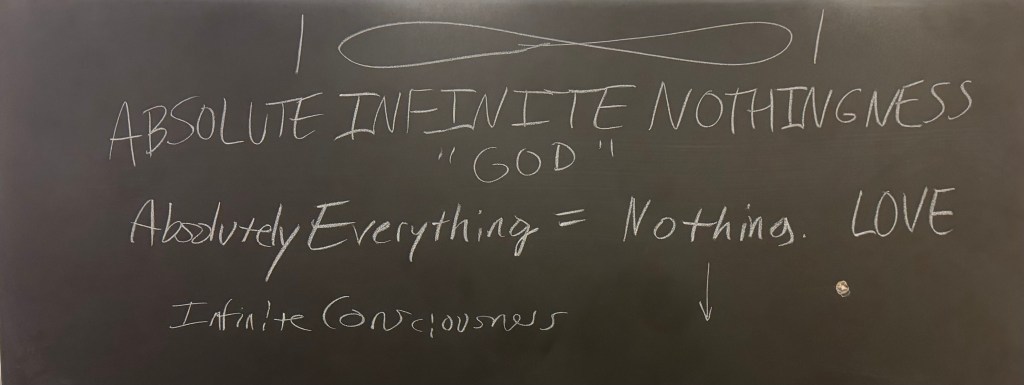 | ∞ |
ABSOLUTE INFINITE NOTHINGNESS
"GOD"
Absolutely Everything = Nothing. LOVE
↓
Infinite Consciousness